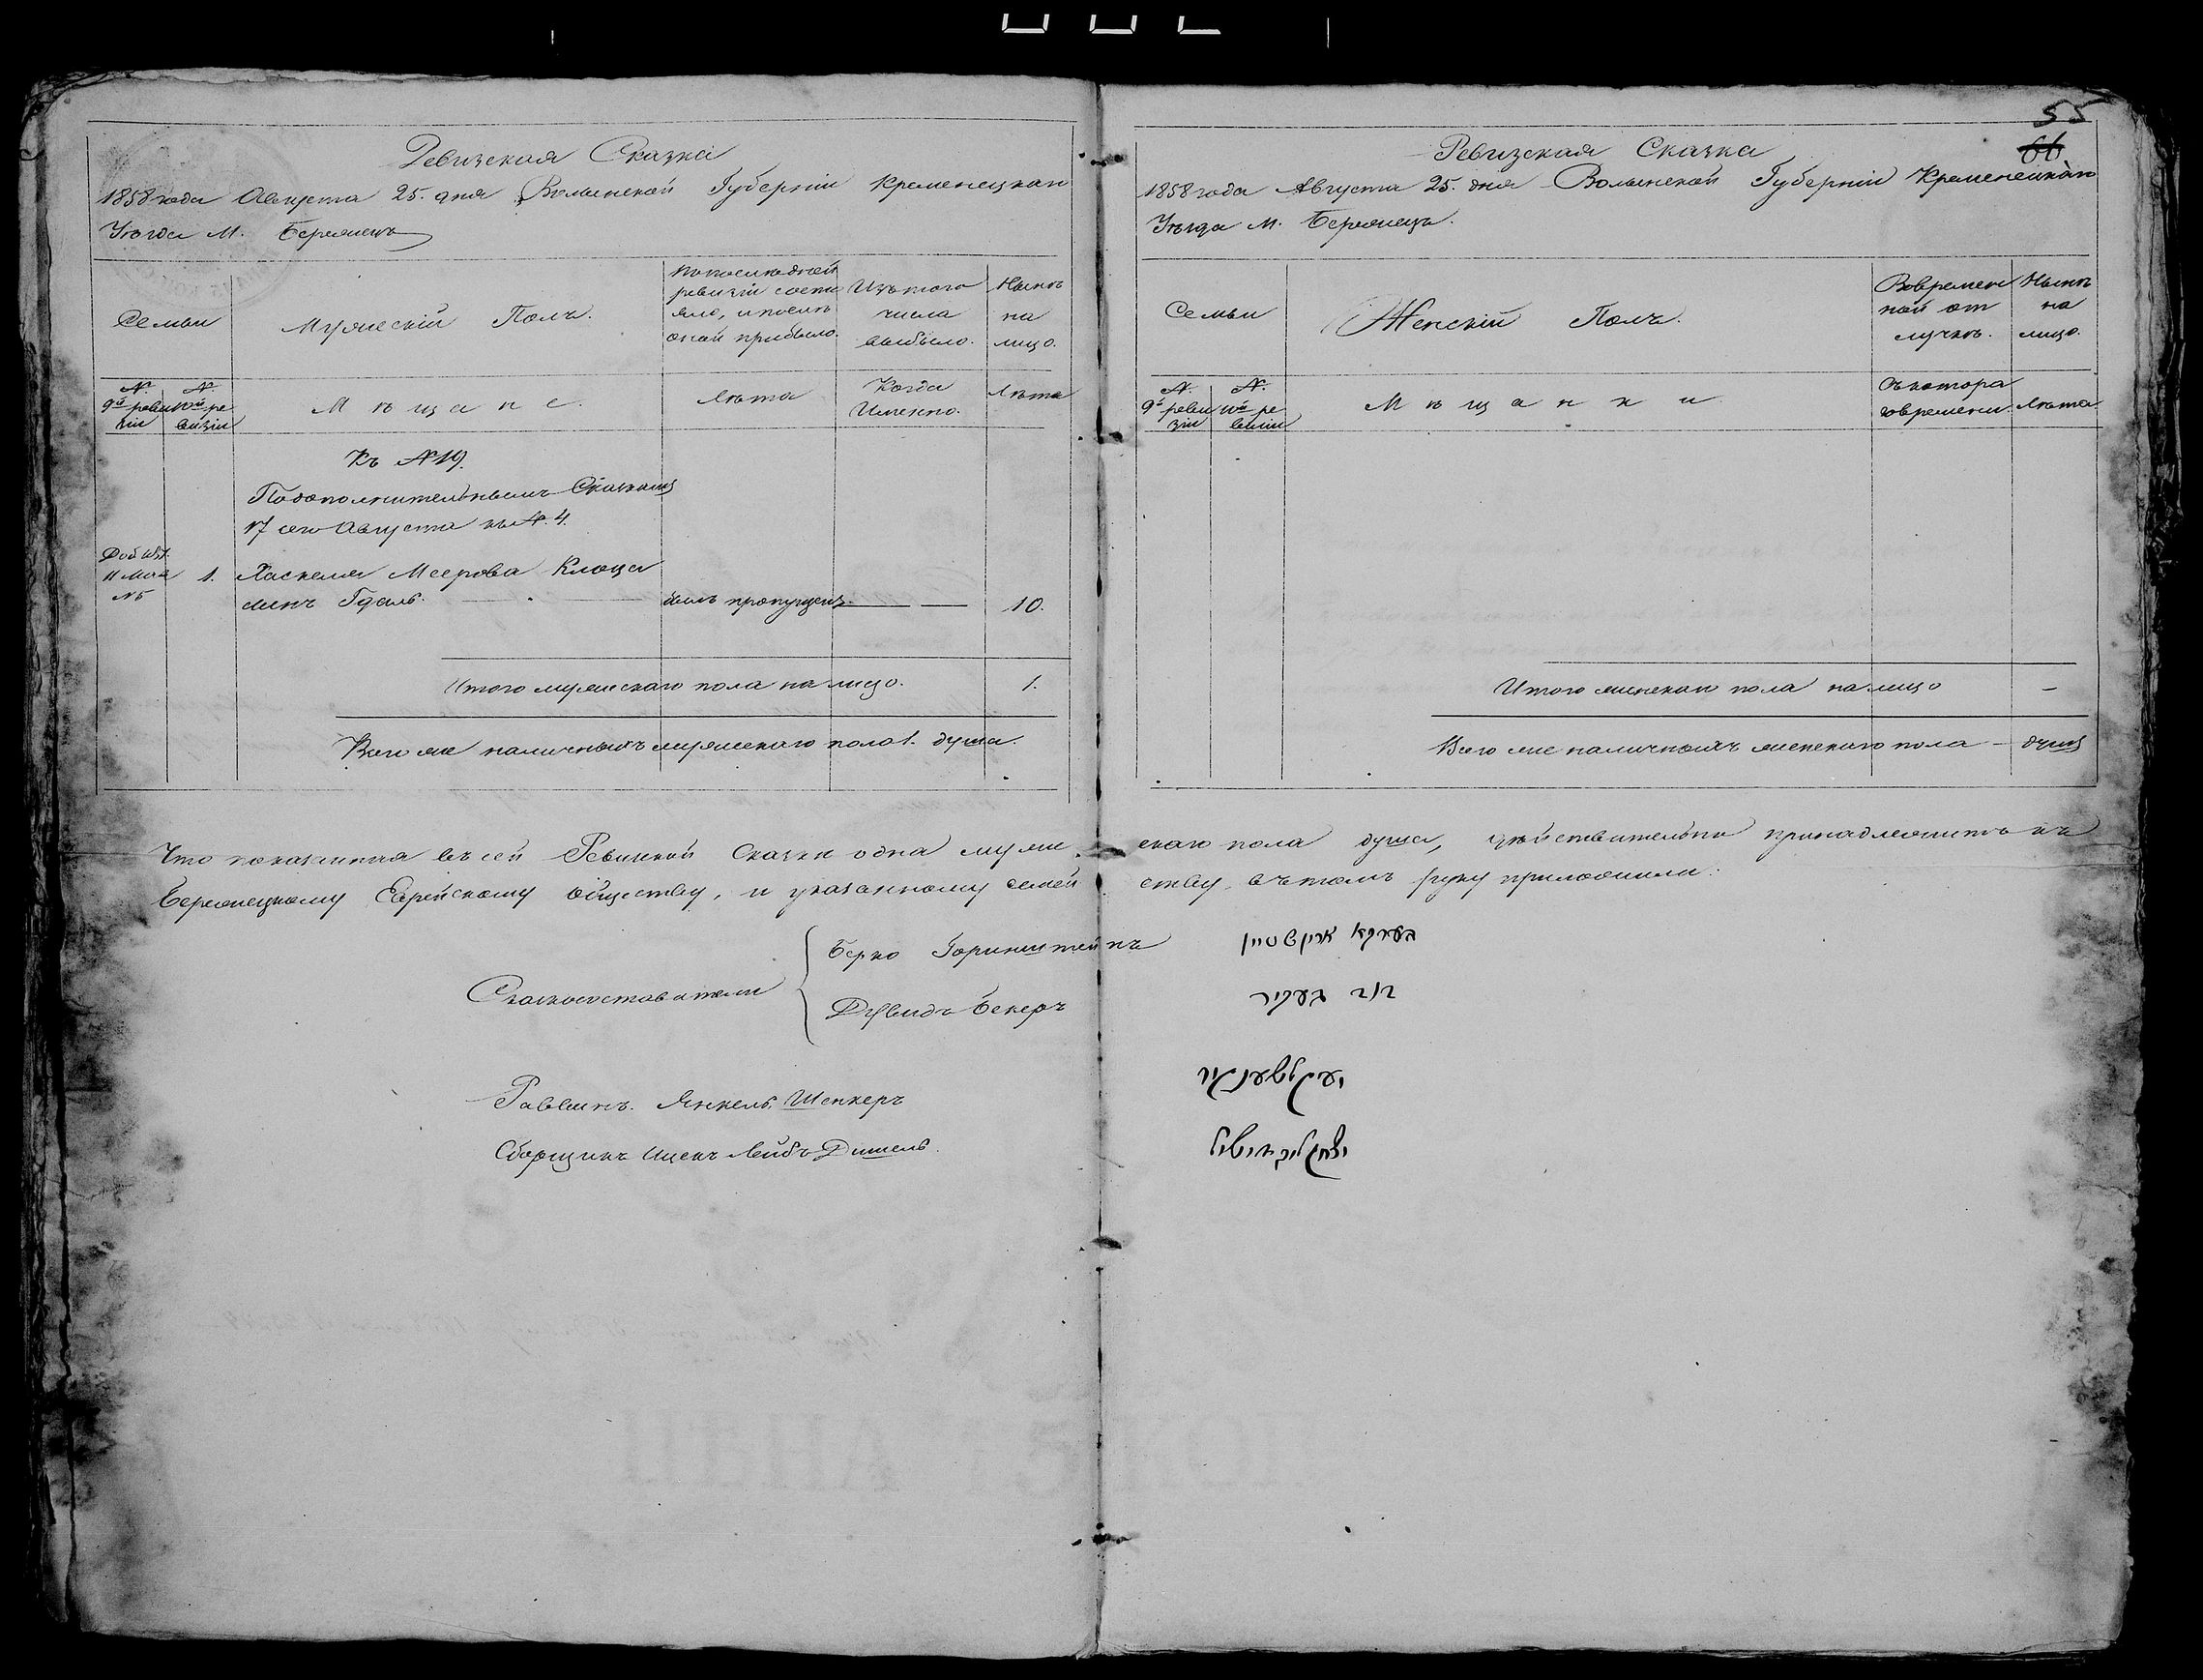 55
66
Ревизская Сказка
1858 года Августа 25. дня Волынской Губерніи Кременецкаго
Уѣзда М. Бережецъ
Семьи
Мужескій Полъ.
По последней
ревизіи состо
яло, и после
оной прибыло.
Изъ того
числа
выбыло.
Нынѣ
на
лицо.
№.
9й реви
зіи
№.
10й ре
визіи
Мѣщане.
Лѣта
Когда
Именно.
Лѣта
Къ № 19.
По дополнительнымъ Сказкамъ
17 сего Августа къ № 4.
11 Мая
№ 5
1.
Хаскеля Меерова Клоца
сынъ Гдаль.
былъ пропущенъ
10.
Итого мужескаго пола на лицо.
1.
Всего же наличныхъ мужескаго пола 1. душа.
Ревизская Сказка
1858 года Августа 25. дня Волынской Губерніи Кременецкаго
Уѣзда М. Бережецъ.
Семьи
Женскій Полъ.
Вовремен
ной от
лучкѣ.
Нынѣ
на
лицо.
№.
9й реви
зіи
№.
10й ре
визіи
Мѣщанки
Съ котора
го времени.
Лѣта.
Итого женскаго пола на лицо
—
Всего же наличныхъ женскаго пола — душъ
Что показанная въ сей Ревизской Сказки одна муже скаго пола душа, дѣйствительно принадлежитъ къ
Бережецкому Еврейскому обществу, и указанному семей ству, въ томъ руку приложили:
Сказкосоставители
Берко Горинштейнъ
בערקא
Дувидъ Бекеръ
דוד בעקיר
Раввинъ. Янкель Шенкеръ
Сборщикъ Ицекъ Лейбъ Дишель.